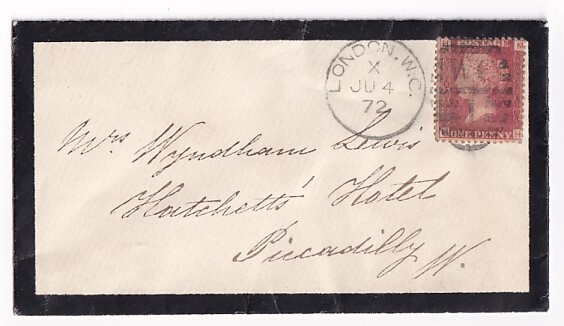 LONDON.W.C.
X
JU 4
72
POSTAGE
ONE PENNY
Mrs Wyndham Lewis
Hatchetts' Hotel
Piccadilly
W.